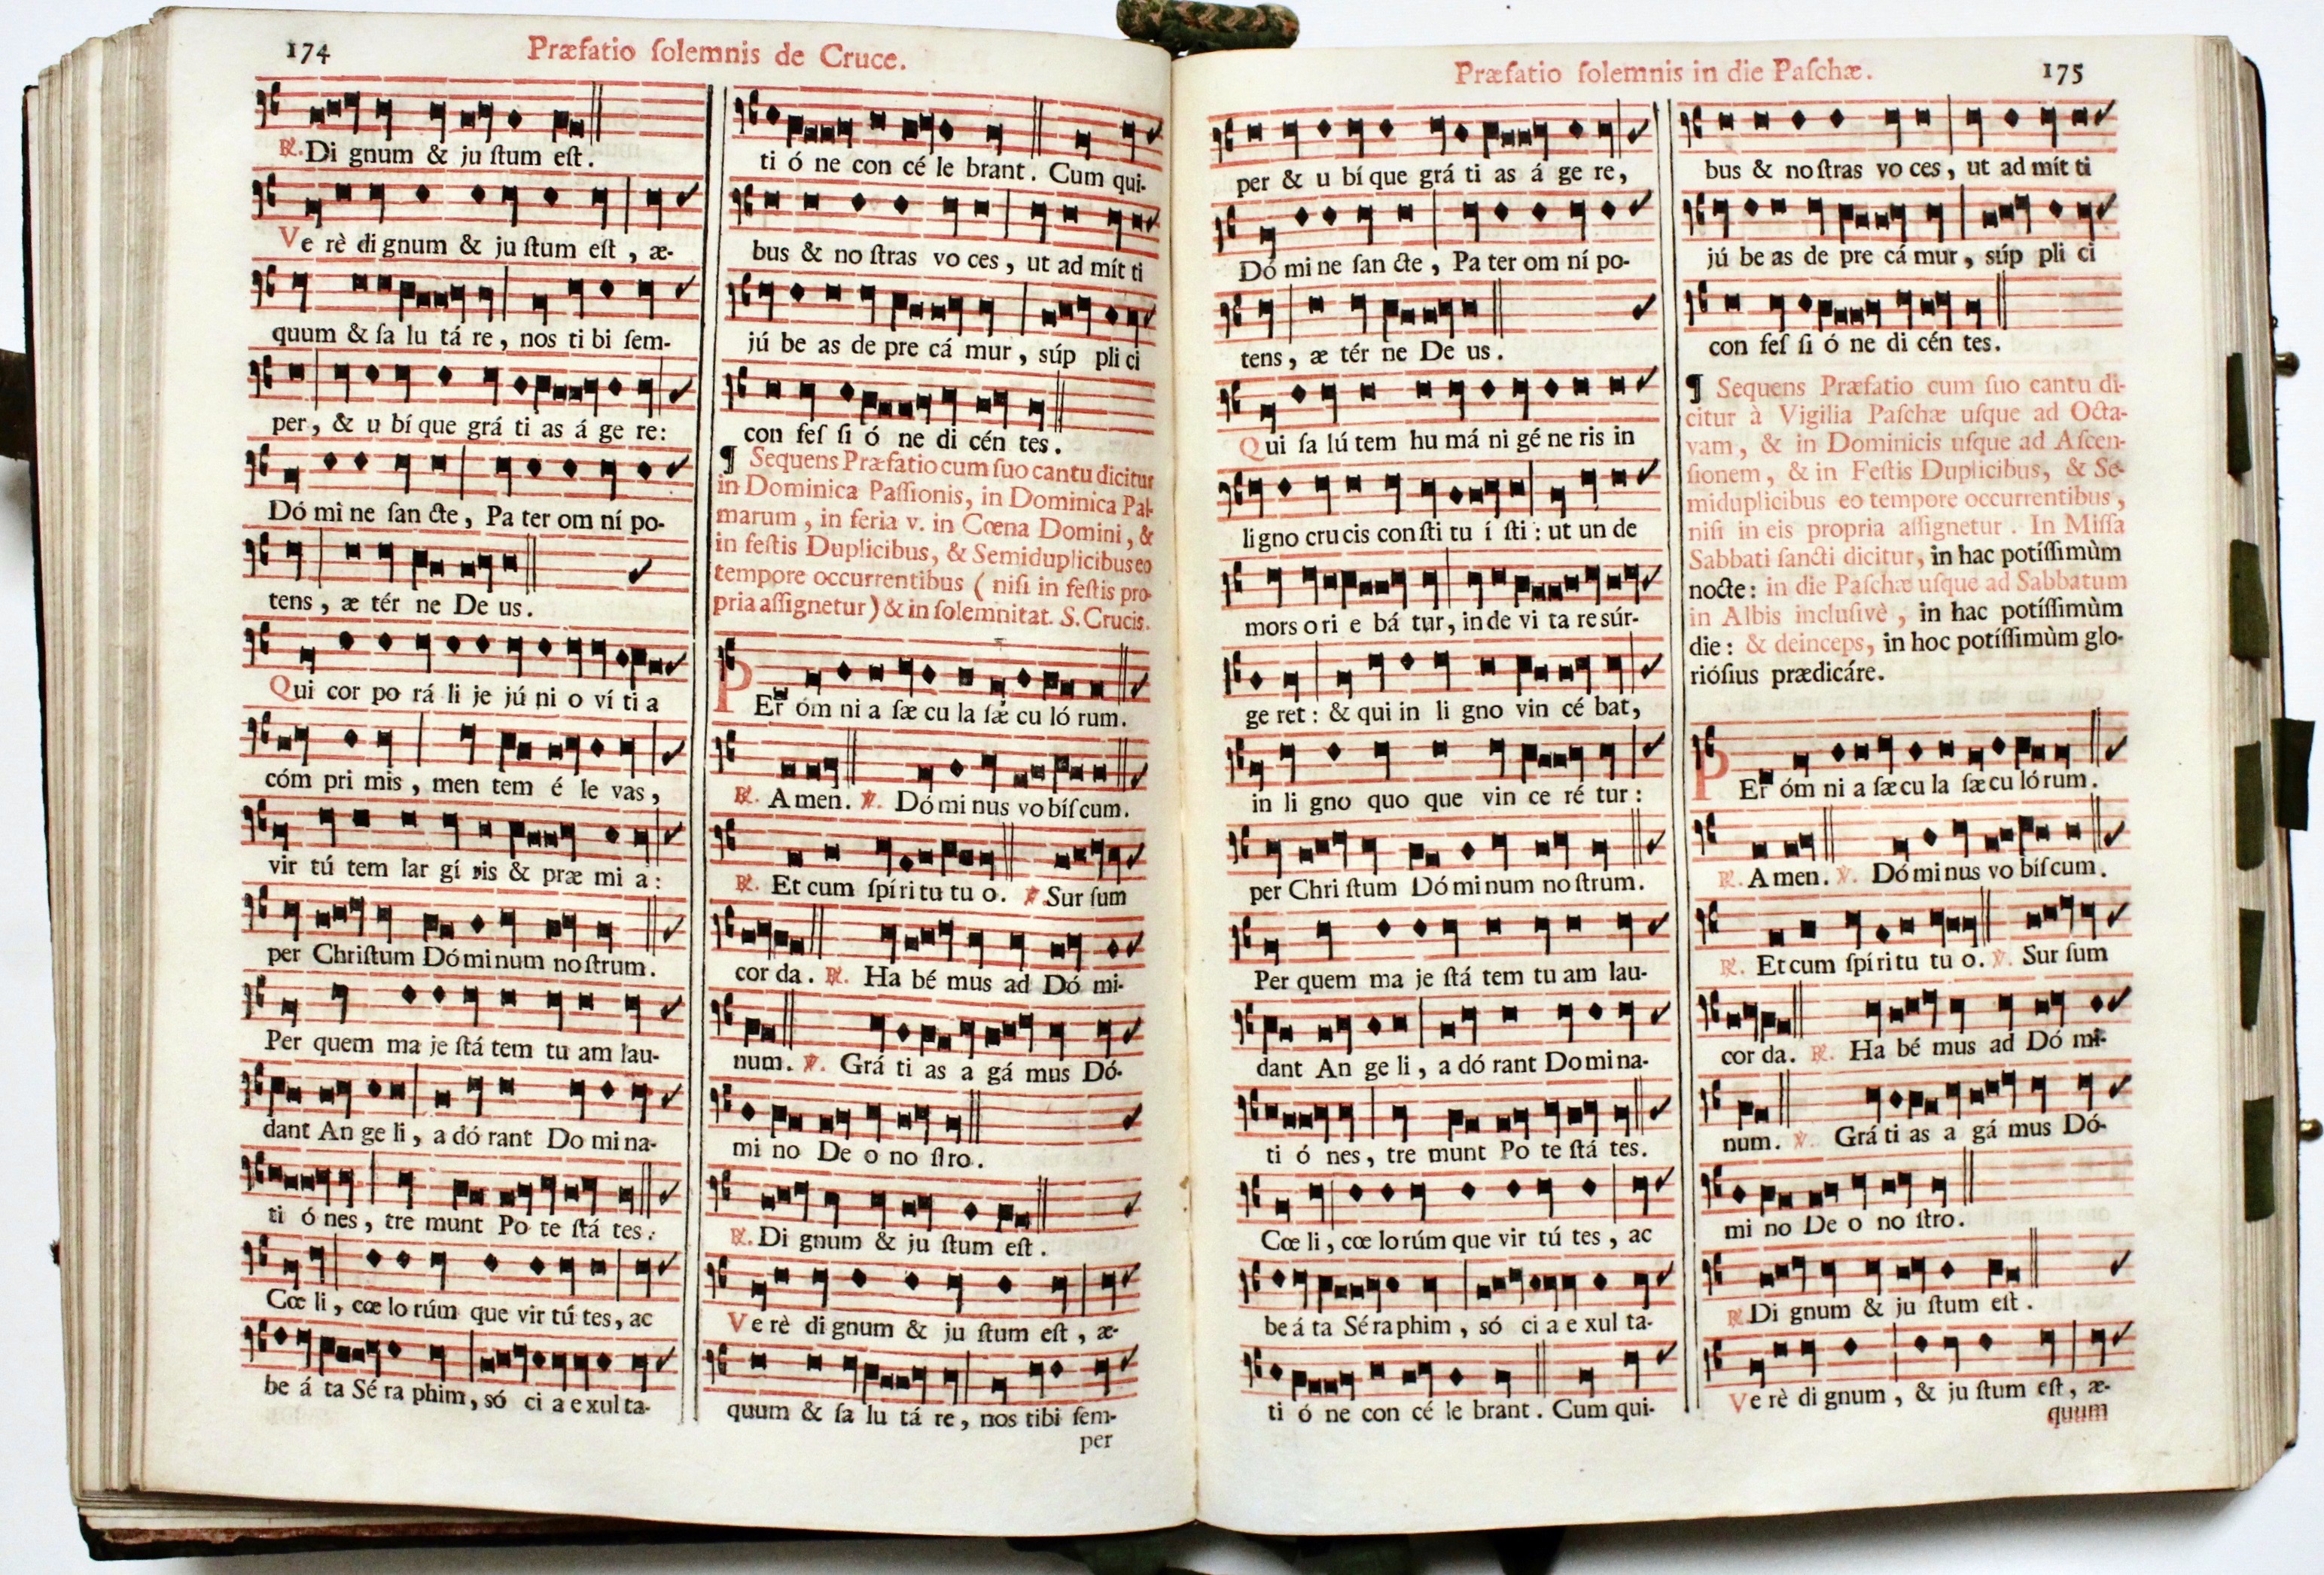 174
Præfatio ſolemnis de Cruce.
℟. Di gnum & ju ſtum eſt.
Ve rè di gnum & ju ſtum eſt, æ-
quum & ſa lu tá re, nos ti bi ſem-
per, & u bí que grá ti as á ge re:
Dó mi ne ſan cte, Pa ter om ní po-
tens, æ tér ne De us.
Qui cor po rá li je jú ni o ví ti a
cóm pri mis, men tem é le vas,
vir tú tem lar gí ris & præ mi a:
per Chriſtum Dó mi num no ſtrum.
Per quem ma je ſtá tem tu am lau-
dant An ge li, a dó rant Do mi na-
ti ó nes, tre munt Po te ſtá tes.
Cœ li, cœ lo rúm que vir tú tes, ac
be á ta Sé ra phim, só ci a e xul ta-
ti ó ne con cé le brant. Cum qui-
bus & no ſtras vo ces, ut ad mít ti
jú be as de pre cá mur, súp pli ci
con feſ ſi ó ne di cén tes.
¶ Sequens Præfatio cum ſuo cantu dicitur
in Dominica Paſſionis, in Dominica Pal-
marum, in feria v. in Cœna Domini, &
in feſtis Duplicibus, & Semiduplicibus eo
tempore occurrentibus (niſi in feſtis pro-
pria aſſignetur) & in ſolemnitat. S. Crucis.
PEr óm ni a ſæ cu la ſæ cu ló rum.
℟. A men. ℣. Dó mi nus vo bíſ cum.
℟. Et cum ſpí ri tu tu o. ℣. Sur ſum
cor da. ℟. Ha bé mus ad Dó mi-
num. ℣. Grá ti as a gá mus Dó-
mi no De o no ſtro.
℟. Di gnum & ju ſtum eſt.
Ve rè di gnum & ju ſtum eſt, æ-
quum & ſa lu tá re, nos tibi ſem-
per
Præfatio ſolemnis in die Paſchæ.
175
per & u bí que grá ti as á ge re,
Dó mi ne ſan cte, Pa ter om ní po-
tens, æ tér ne De us.
Qui ſa lú tem hu má ni gé ne ris in
li gno cru cis con ſti tu í ſti: ut un de
mors o ri e bá tur, in de vi ta re súr-
ge ret: & qui in li gno vin cé bat,
in li gno quo que vin ce ré tur:
per Chri ſtum Dó mi num no ſtrum.
Per quem ma je ſtá tem tu am lau-
dant An ge li, a dó rant Do mi na-
ti ó nes, tre munt Po te ſtá tes.
Cœ li, cœ lo rúm que vir tú tes, ac
be á ta Sé ra phim, só ci a e xul ta-
ti ó ne con cé le brant. Cum qui-
bus & no ſtras vo ces, ut ad mít ti
jú be as de pre cá mur, súp pli ci
con feſ ſi ó ne di cén tes.
¶ Sequens Præfatio cum ſuo cantu di-
citur à Vigilia Paſchæ uſque ad Octa-
vam, & in Dominicis uſque ad Aſcen-
ſionem, & in Feſtis Duplicibus, & Se-
miduplicibus eo tempore occurrentibus,
niſi in eis propria aſſignetur. In Miſſa
Sabbati ſancti dicitur, in hac potíſſimùm
nocte: in die Paſchæ uſque ad Sabbatum
in Albis incluſivè, in hac potíſſimùm
die: & deinceps, in hoc potíſſimùm glo-
rióſius prædicáre.
PEr óm ni a ſæ cu la ſæ cu ló rum.
℟. A men. ℣. Dó mi nus vo bíſ cum.
℟. Et cum ſpí ri tu tu o. ℣. Sur ſum
cor da. ℟. Ha bé mus ad Dó mi-
num. ℣. Grá ti as a gá mus Dó-
mi no De o no ſtro.
℟. Di gnum & ju ſtum eſt.
Ve rè di gnum, & ju ſtum eſt, æ-
quum